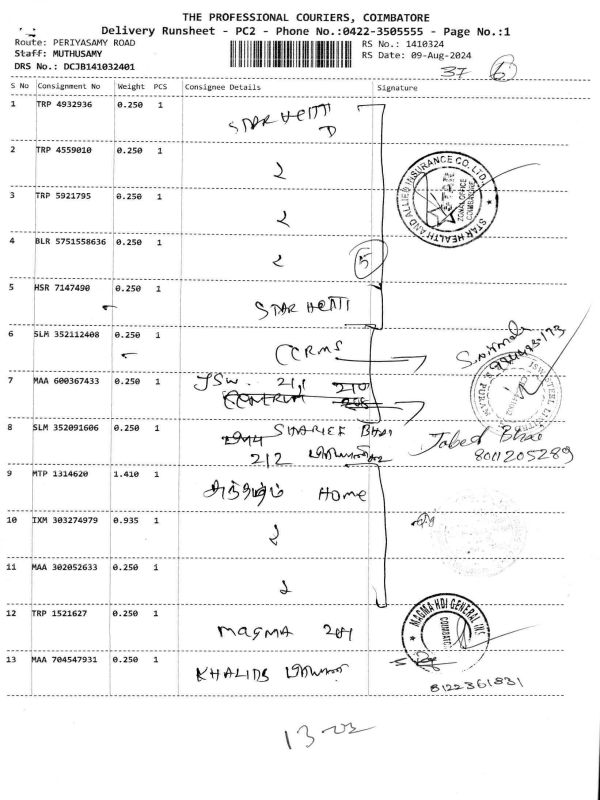 THE PROFESSIONAL COURIERS, COIMBATORE
Delivery Runsheet - PC2 - Phone No.:0422-3505555 - Page No.:1
Route: PERIYASAMY ROAD
Staff: MUTHUSAMY
DRS No.: DCJB141032401
RS No.: 1410324
RS Date: 09-Aug-2024
37 6
S No Consignment No Weight PCS Consignee Details Signature
1 TRP 4932936 0.250 1 STAR HEATH
2 TRP 4559010 0.250 1
3 TRP 5921795 0.250 1
4 BLR 5751558636 0.250 1 5
STAR HEALTH AND ALLIED INSURANCE CO. LTD.
ZONAL OFFICE
COIMBATORE
5 HSR 7147490 0.250 1 STAR HEATH
6 SLM 352112408 0.250 1 CCRMS
7 MAA 600367433 0.250 1 JSW. 211 210
8 SLM 352091606 0.250 1 SHARIEF Bhai
212
Jabed Bhai
8011205289
9 MTP 1314620 1.410 1 HOME
10 IXM 303274979 0.935 1
11 MAA 302052633 0.250 1
12 TRP 1521627 0.250 1 MAGMA 201
MAGMA HDI GENERAL INS
13 MAA 704547931 0.250 1 KHALIDS
8122361831